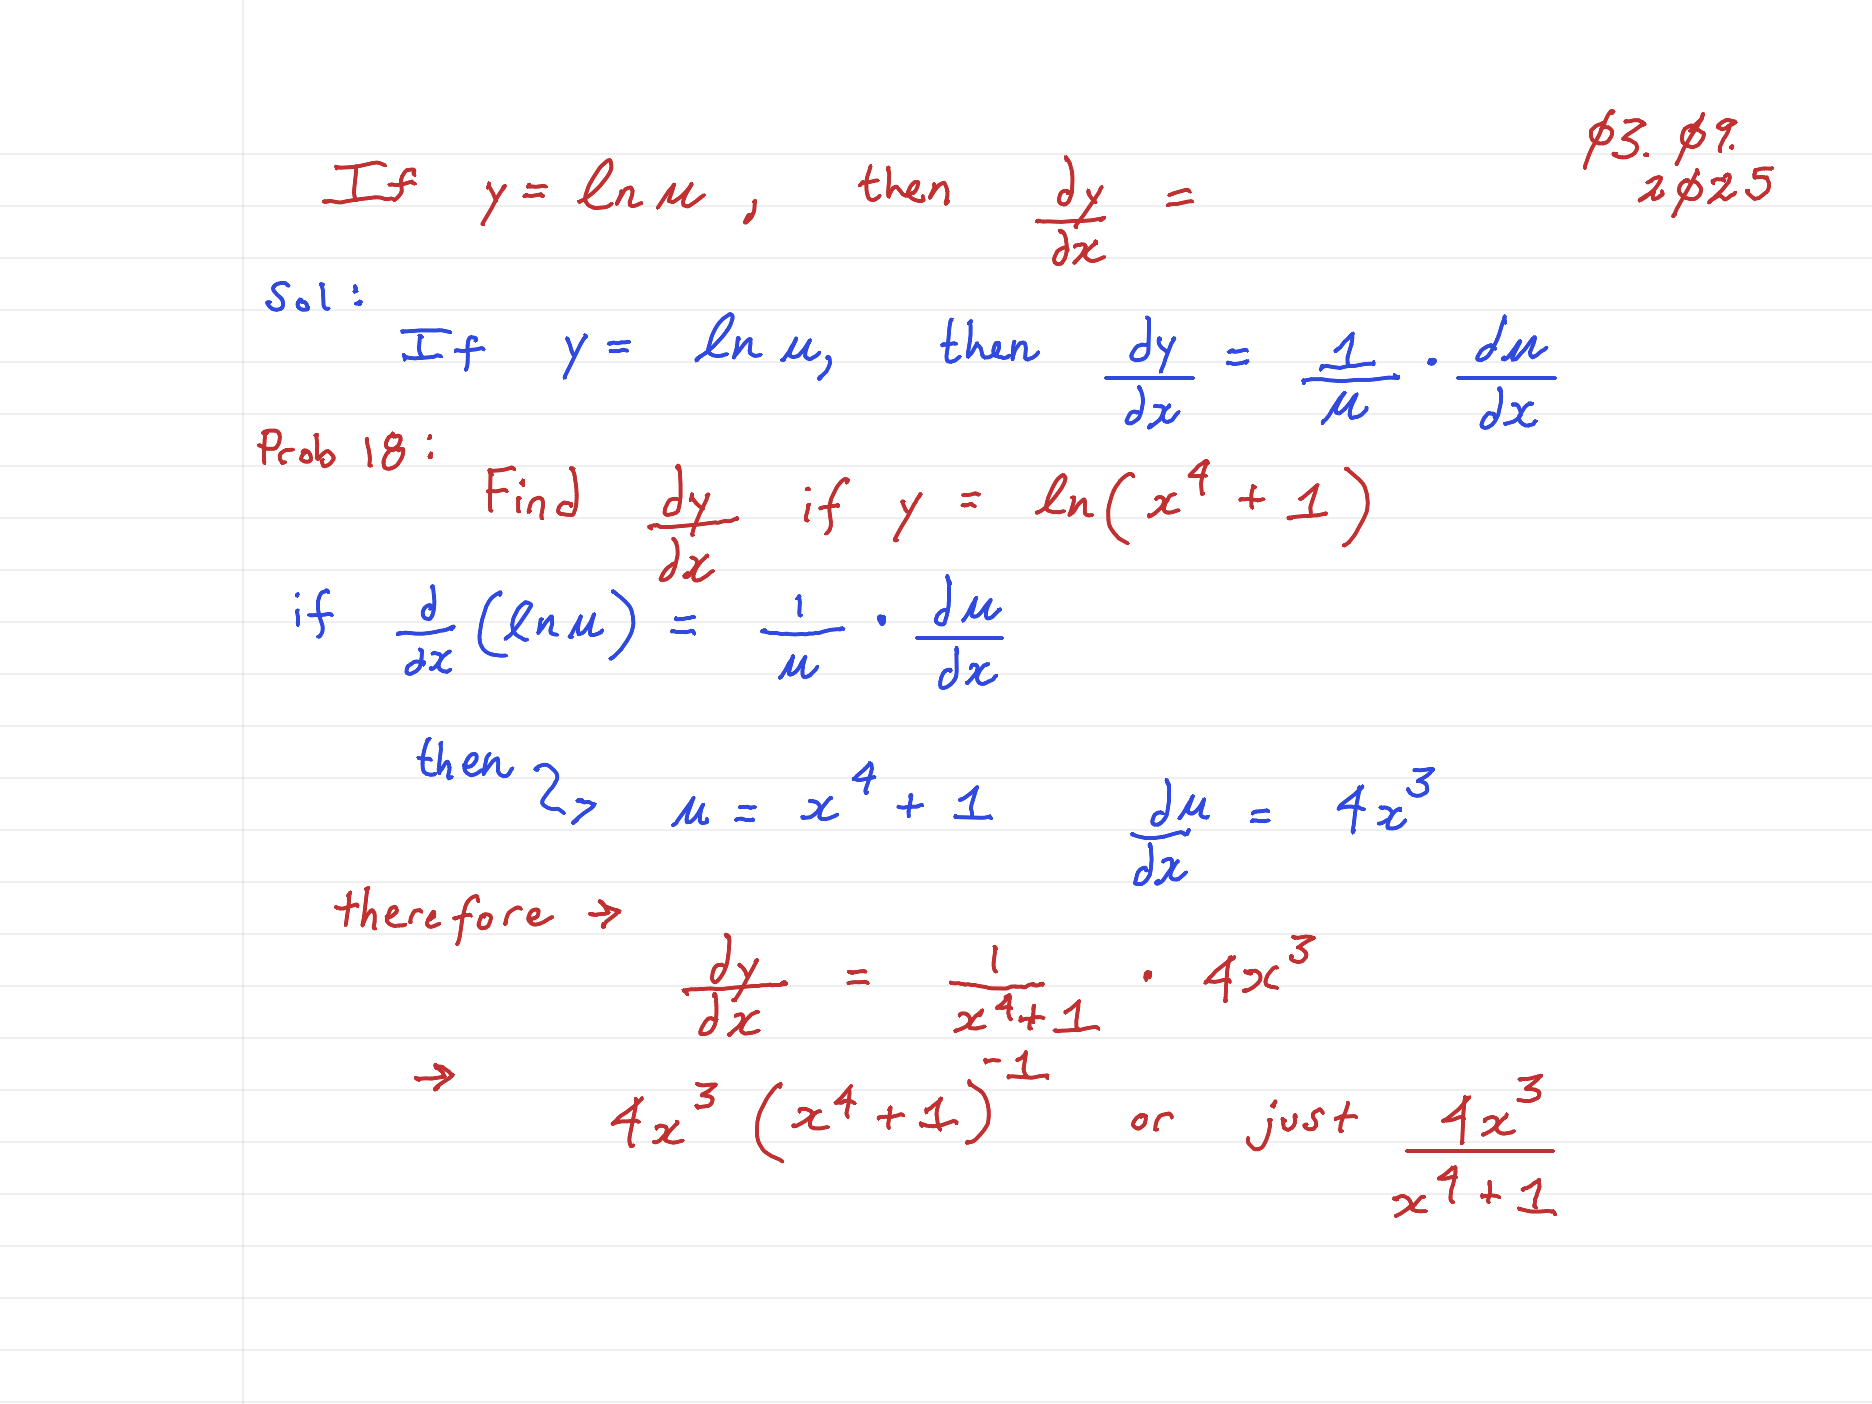 ø3. ø9.
2ø25
If y = ln u , then dy/dx =
Sol:
If y = ln u, then dy/dx = 1/u · du/dx
Prob 18:
Find dy/dx if y = ln(x⁴ + 1)
if d/dx (ln u) = 1/u · du/dx
then → u = x⁴ + 1 du/dx = 4x³
therefore →
dy/dx = 1/(x⁴+1) · 4x³
→ 4x³ (x⁴+1)⁻¹ or just 4x³/(x⁴+1)